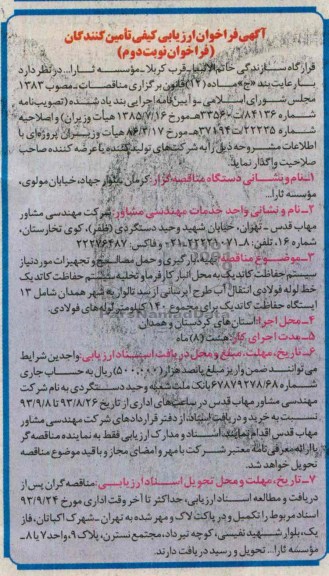 آگهی فراخوان ارزیابی کیفی تأمین کنندگان
(فراخوان نوبت دوم)
قرارگاه سازندگی خاتم‌الانبیاء-قرب کربلا - مؤسسه ثارا... در نظر دارد
با رعایت بند «ج» ماده (۱۲) قانون برگزاری مناقصات - مصوب ۱۳۸۳
مجلس شورای اسلامی و آیین نامه اجرایی بند یاد شده (تصویب‌نامه
شماره ۸۴۱۳۶/ت۳۳۵۶۰هـ مورخ ۱۳۸۵/۷/۱۶ هیأت وزیران) و اصلاحیه
شماره ۲۲۲۳۵/ت۳۷۱۹۴هـ مورخ ۸۶/۳/۱۷ هیأت وزیران پروژه‌ای با
اطلاعات مشروحه ذیل را به شرکت‌های تولید کننده یا عرضه کننده صاحب
صلاحیت واگذار نماید.
۱- نام و نشانی دستگاه مناقصه گزار: کرمان، بلوار جهاد، خیابان مولوی،
مؤسسه ثارا...
۲- نام و نشانی واحد خدمات مهندسی مشاور: شرکت مهندسی مشاور
مهاب قدس - تهران، خیابان شهید وحید دستگردی (ظفر)، کوی تخارستان،
شماره ۱۶، تلفن: ۸-۲۲۲۲۱۰۷۱-۰۲۱ و فاکس: ۲۲۲۷۶۴۸۷
۳- موضوع مناقصه: تهیه، بارگیری و حمل مصالح و تجهیزات مورد نیاز
سیستم حفاظت کاتدیک به محل انبار کارفرما و تخلیه سیستم حفاظت کاتدیک
خط لوله فولادی انتقال آب طرح آبرسانی از سد تالوار به شهر همدان شامل ۱۳
ایستگاه حفاظت کاتدیک برای مجموع ۱۴۰ کیلومتر لوله‌های فولادی.
۴- محل اجرا: استان‌های کردستان و همدان
۵- مدت اجرای کار: هشت (۸) ماه
۶- تاریخ، مهلت، مبلغ و محل دریافت اسناد ارزیابی: واجدین شرایط
می‌توانند ضمن واریز مبلغ پانصد هزار (۵۰۰،۰۰۰) ریال به حساب جاری
شماره ۶۷۸۷۹۲۷۸/۶۸ بانک ملت شعبه وحید دستگردی به نام شرکت
مهندسی مشاور مهاب قدس در ساعت‌های اداری از تاریخ ۹۳/۸/۲۶ تا ۹۳/۹/۸
نسبت به خرید و دریافت اسناد، از دفتر قراردادهای شرکت مهندسی مشاور
مهاب قدس اقدام نمایند. اسناد و مدارک ارزیابی فقط به نماینده مناقصه گر
با ارائه معرفی نامه معتبر شرکت با مهر و امضای مجاز و با قید موضوع مناقصه
تحویل خواهد شد.
۷- تاریخ، مهلت و محل تحویل اسناد ارزیابی: مناقصه گران پس از
دریافت و مطالعه اسناد ارزیابی، حداکثر تا آخر وقت اداری مورخ ۹۳/۹/۲۴
اسناد مربوط را تکمیل و در پاکت لاک و مهر شده به تهران - شهرک اکباتان، فاز
یک، بلوار شهید نفیسی، کوچه تیرداد، مجتمع نسترن، پلاک ۹، واحد ۷ یا ۸ -
مؤسسه ثارا... تحویل و رسید دریافت دارند.